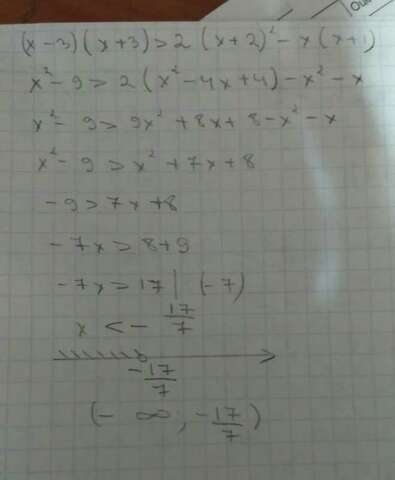 (x-3)(x+3)>2(x+2)²-x(x+1)
x²-9>2(x²-4x+4)-x²-x
x²-9>9x²+8x+8-x²-x
x²-9>x²+7x+8
-9>7x+8
-7x>8+9
-7x>17|(-7)
x<-17/7
-17/7
(-∞,-17/7)